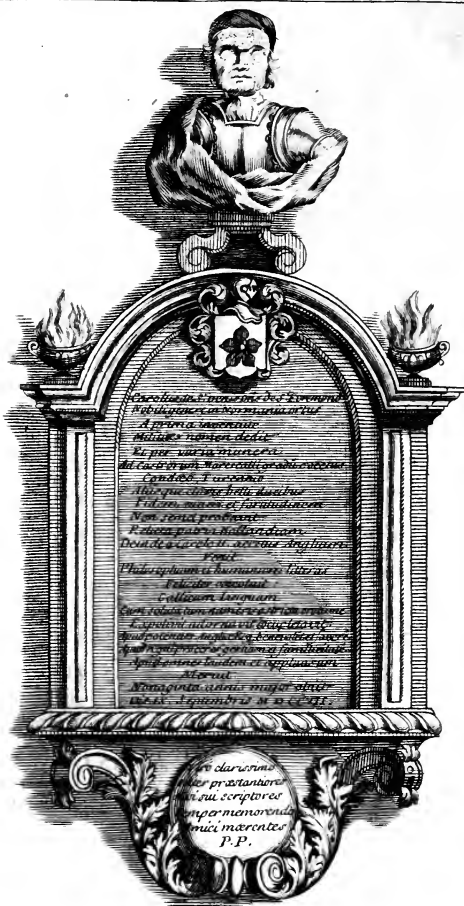 Carolus de St Denis de St Evremond
Nobili genere in Normania ortus
A prima iuventute
Militiæ nomen dedit
Et per varia munera
Ad Castrorum Marescalli gradum evectus
Condæo Turenio
Aliisque claris belli ducibus
Fidem suam et fortitudinem
Non semel probavit
Relicta patria Hollandiam
Deinde a Carolo II. accitus Angliam
Venit
Philosophiam et humaniores litteras
Feliciter excoluit
Gallicam linguam
Cum soluta tum numeris astricta oratione
Expolivit adornavit locupletavit
Apud Angliæ Reges et favorem
Apud regni proceres gratiam et familiaritatem
Apud omnes laudem et applausum
Meruit
Nonaginta annis major obiit
die IX. Septembris MDCCIII.
clarissimo
præstantiores
sui scriptores
memorendo
mærentes
P.P.